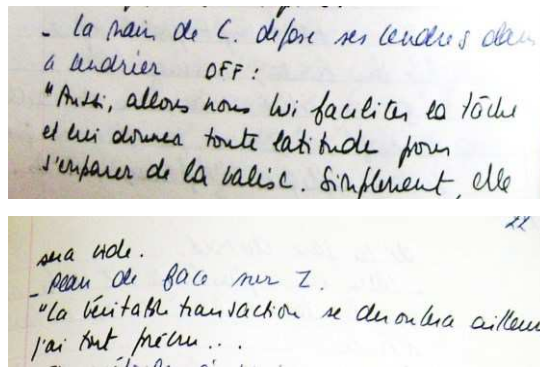 - la main de C. dépose ses cendres dans
le cendrier OFF :
"Aussi, allons nous lui faciliter la tâche
et lui donner toute latitude pour
s'emparer de la valise. Simplement, elle
22
sera vide.
- Plan de face sur Z.
"La véritable transaction se déroulera ailleurs
j'ai tout prévu...